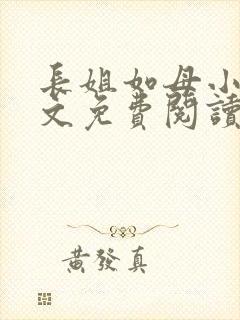 長姐如母小
文免費閱讀
黃發真